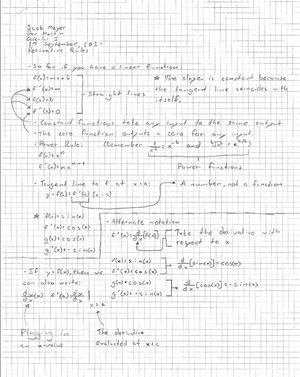 Jack Meyer
Von Martin
Calculus I
17 September, 2015
Derivative Rules
- So far if you have a linear function
f(x)=mx+b
f'(x)=m
f(x)=b
f'(x)=0
- Straight lines
* The slope is constant because
the tangent line coincides with
itself.
- Constant functions take any input to the same output.
- The zero function outputs a zero for any input.
- Power Rule:
Remember
and
f(x)=xⁿ
f'(x)=nxⁿ⁻¹
Power functions
- Tangent line to f at x=a:
y=f(a)+f'(a)(x-a)
→ A number, not a function
* f(x)=sin(x)
f'(x)=cos(x)
g(x)=cos(x)
g'(x)=-sin(x)
- Alternate notation
f'(x)=d/dx[f(x)]
Take the derivative with
respect to x
f(x)=sin(x)
f'(x)=cos(x)
d/dx[sin(x)]=cos(x)
g(x)=cos(x)
g'(x)=-sin(x)
d/dx[cos(x)]=-sin(x)
- If y=f(x), then we
can also write:
x=a
Plugging in
an x-value
The derivative
evaluated at x=a